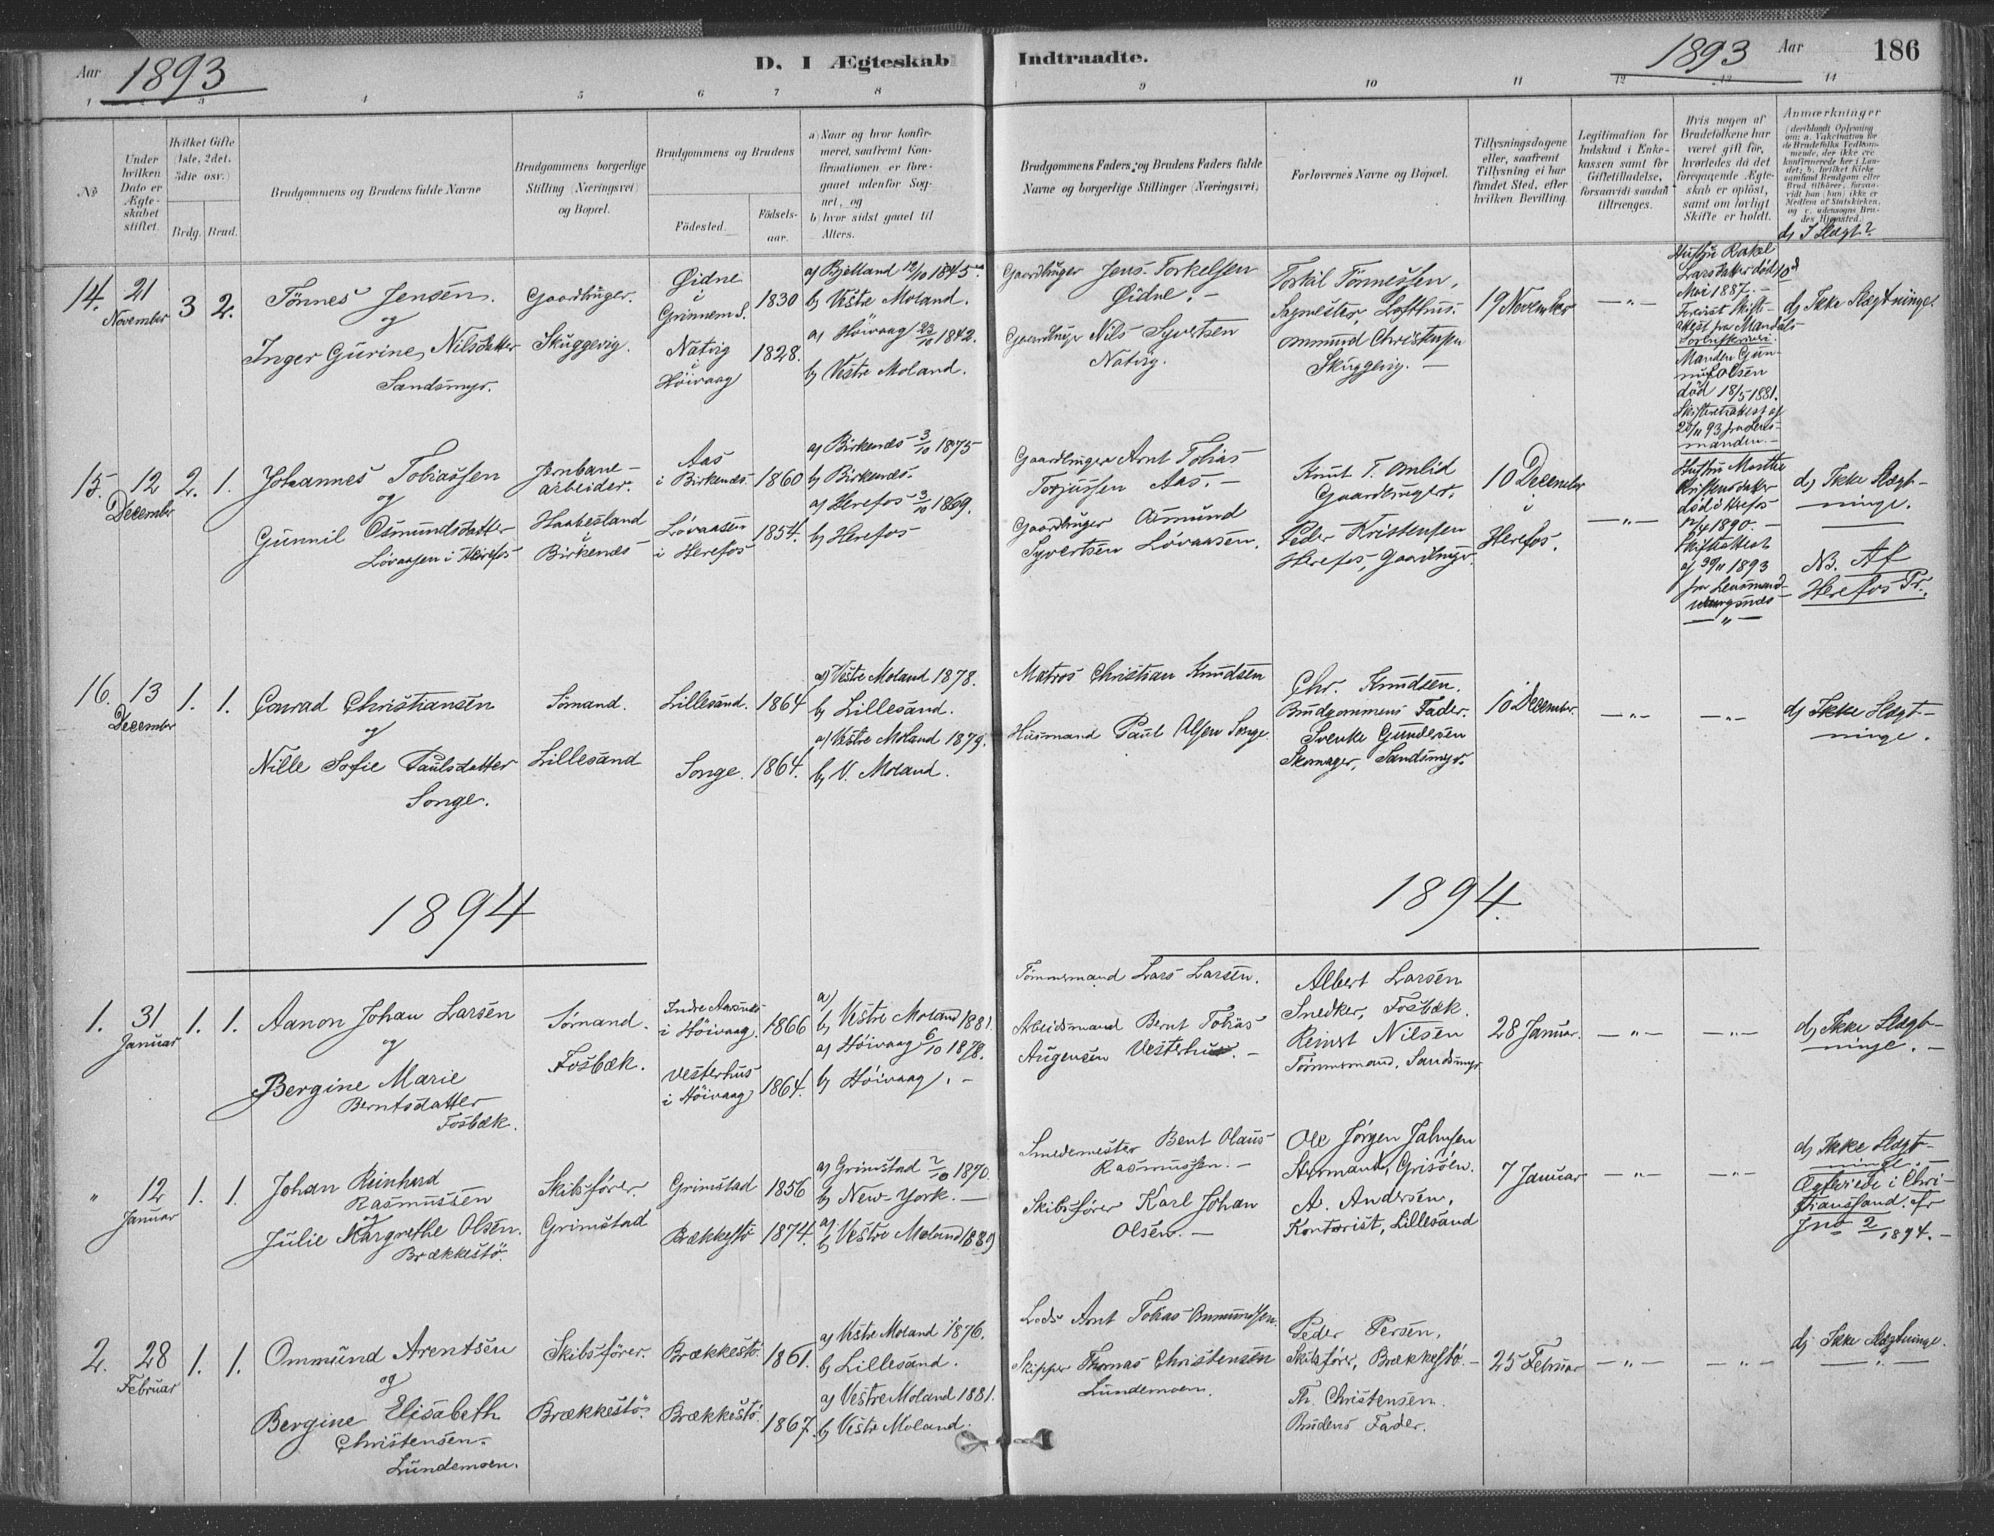 Aar 1893
D. I Ægteskab Indtraadte.
1893 Aar 186
1 2 3 4 5 6 7 8 9 10 11 12 13 14
No
Under hvilken Dato er Ægteskabet stiftet.
Hvilket Gifte (1ste, 2det, 3die osv.)
Brdg. Brud.
Brudgommens og Brudens fulde Navne
Brudgommens borgerlige Stilling (Næringsvei) og Bopæl.
Brudgommens og Brudens
Födested. Födsels-aar.
a) Naar og hvor konfirmeret, saafremt Konfirmationen er foregaaet udenfor Sognet, og
b) hvor sidst gaaet til Alters.
Brudgommens Faders og Brudens Faders fulde Navne og borgerlige Stillinger (Næringsvei).
Forlovernes Navne og Bopæl.
Tillysningsdagene eller, saafremt Tillysning ei har fundet Sted, efter hvilken Bevilling.
Legitimation for Indskud i Enkekassen samt for Giftetilladelse, forsaavidt saadan tiltrænges.
Hvis nogen af Brudefolkene har været gift för, hvorledes da det foregaaende Ægteskab er oplöst, samt om lovligt Skifte er holdt.
Anmærkninger
d) I Slægt?
14. 21 November 3 2.
Tönnes Jensen.
og
Inger Gurine Nilsdatter
Sandsmyr.
Gaardbruger.
Skuggevig.
Øidne
i
Grinnem S. 1830
Natvig
i
Höivaag 1828.
a) Bjelland 12/10 1845
b) Vestre Moland.
a) Höivaag 23/10 1842.
b) Vestre Moland.
Gaardbruger Jens Torkelsen
Øidne. –
Gaardbruger Nils Syvertsen
Natvig.
Torkil Tönnessen,
Sagmester, Lofthus.
Ommund Christensen
Skuggevig. –
19 November
— „ —
Hustru Rakel
Larsdatter död 10d
Mai 1887. –
attest fra Mandals
Manden Gun-
nuf Olsen
död 18/5 1881.
Skifteattest af
manden. –
d) Ikke Slægtninge.
15. 12 December 2. 1.
Johannes Tobiassen
og
Gunnil Osmundsdatter
Lövaasen i Herefos
Jernbane-
arbeider.
Haabesland
i
Birkenæs
Aas
i Birkenæs 1860
Lövaasen
i Herefos 1854.
a) Birkenæs 3/10 1875
b) Birkenæs.
a) Herefos 3/10 1869.
b) Herefos
Gaardbruger Arnt Tobias
Torjussen Aas. –
Gaardbruger Osmund
Syvertsen Lövaasen.
Knut T. Omlid
Gaardbruger.
Peder Kristensen
Herefos, Gaardbruger.
10 December
i
Herefos.
— „ —
Hustru Marthe
Kristensdatter
död i Herefos
12/4 1890. –
Skifteattest
af 30/11 1893
fra Lensmand
— „ —
d) Ikke Slægt-
ninge.
NB. Af
Herefos Pr.
16. 13 December 1. 1.
Conrad Christiansen
og
Nille Sofie Paulsdatter
Songe.
Sömand.
Lillesand
Lillesand. 1864
Songe. 1864.
a) Vestre Moland 1878.
b) Lillesand.
a) Vestre Moland 1879.
b) V. Moland.
Matros Christian Knudsen
Husmand Paul Olsen Songe.
Chr. Knudsen.
Brudgommens Fader.
Svenke Gundersen
Skomager, Sandsmyr.
10 December.
— „ — — „ —
d) Ikke Slægt-
ninge.
1894 1894.
1. 31 Januar 1. 1.
Aanon Johan Larsen
og
Bergine Marie
Berntsdatter
Fosbæk.
Sömand.
Fosbæk.
Indre Aasnes
i Höivaag. 1866
Vesterhus
i Höivaag 1864.
a)
b) Vestre Moland 1881.
a) Höivaag 6/10 1878.
b) Höivaag. –
Tömmermand Lars Larsen.
Arbeidsmand Bernt Tobias
Augensen Vesterhus. –
Albert Larsen
Snedker, Fosbæk.
Reinert Nilsen
Tömmermand, Sandsmyr
28 Januar.
— „ — — „ —
d) Ikke Slægt-
ninge. –
„ 12 Januar 1. 1.
Johan Reinhard
Rasmussen
og
Julie Margrethe Olsen.
Brækkestö.
Skibsförer.
Grimstad
Grimstad 1856
Brækkestö 1874.
a) Grimstad 2/10 1870.
b) New-York. –
a)
b) Vestre Moland 1889
Smedemester Bent Olaus
Rasmussen. –
Skibsförer Karl Johan
Olsen. –
Ole Jörgen Jahnsen
Styrmand, Grisöen.
A. Andersen,
Kontorist, Lillesand
7 Januar
— „ — — „ —
d) Ikke Slægt-
ninge. –
Ægteviede i Chri-
stianssand. cfr
Jno 2/1894. –
2. 28 Februar 1. 1.
Ommund Arentsen
og
Bergine Elisabeth
Christensen.
Lundemoen.
Skibsförer.
Brækkestö.
Brækkestö 1861.
Brækkestö. 1867.
a) Vestre Moland 1876.
b) Lillesand.
a) Vestre Moland 1881.
b) Vestre Moland.
Lods Arnt Tobias Ommundsen.
Skipper Thomas Christensen
Lundemoen.
Peder Persen,
Skibsförer, Brækkestö. –
Th. Christensen.
Brudens Fader.
25 Februar
— „ — — „ —
d) Ikke Slægtninge.
— „ —